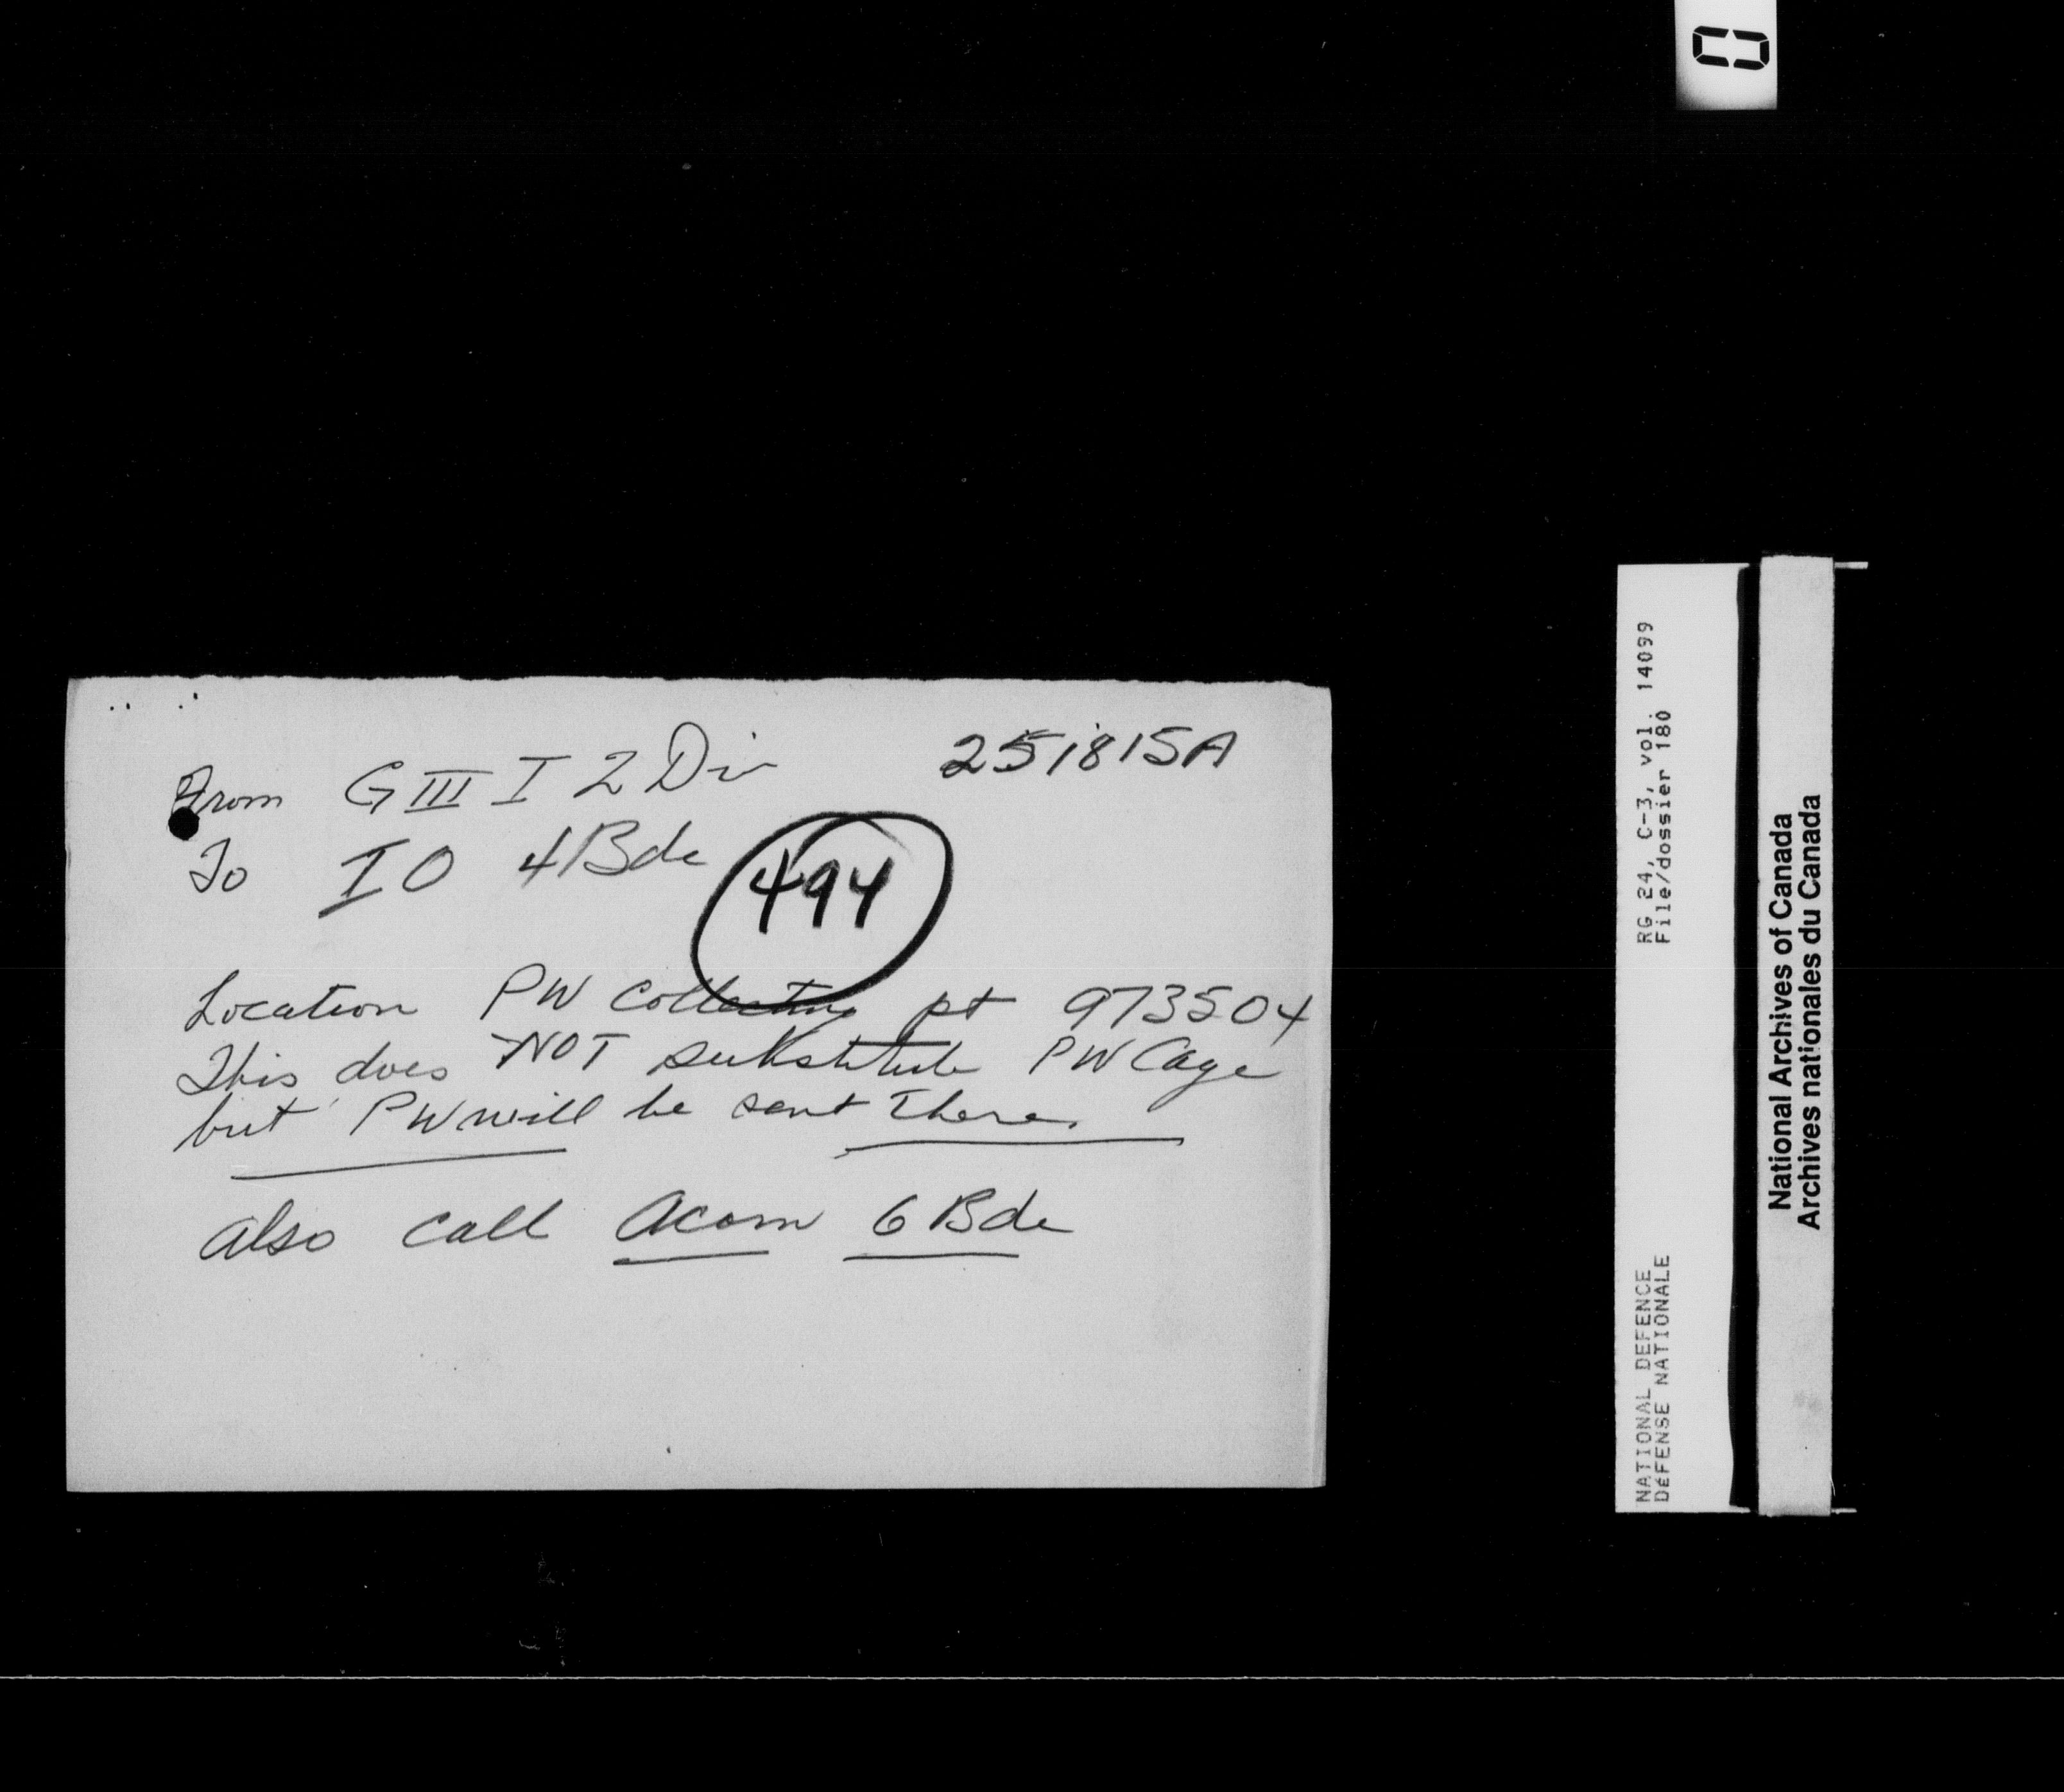 From G III I 2 Div 251815A
To IO 4 Bde
494
Location PW Collecting pt 973504
This does NOT substitute PW Cage
but PW will be sent there.
also call Acorn 6 Bde
RG 24, C-3, vol. 14099
File/dossier 180
NATIONAL DEFENCE
DÉFENSE NATIONALE
National Archives of Canada
Archives nationales du Canada
0